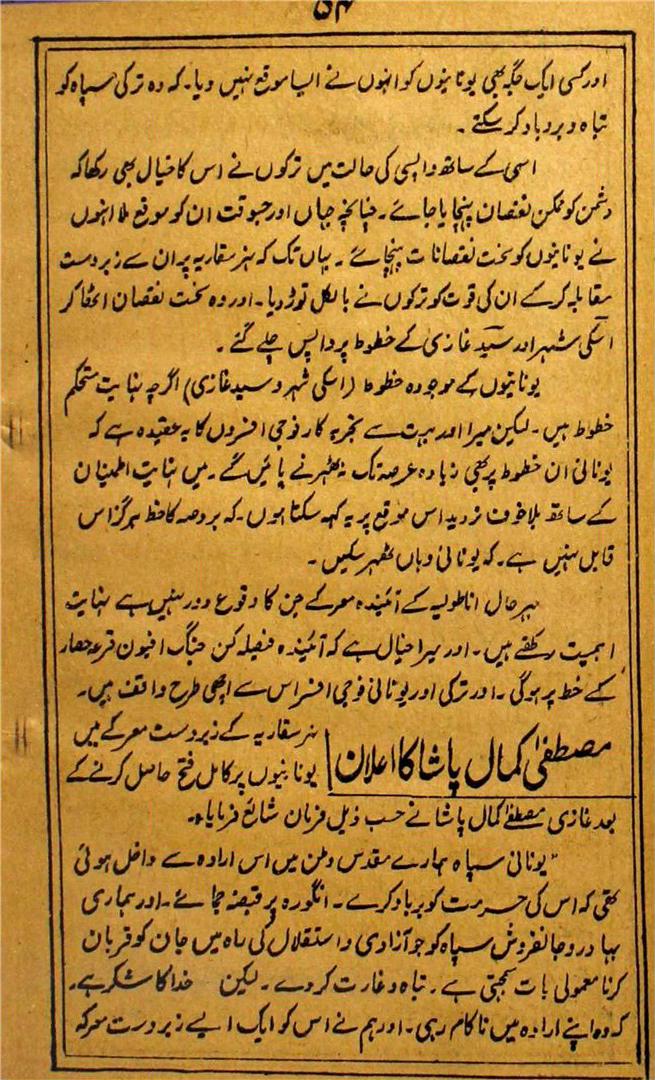 ۵۴
اور کسی ایک جگہ بھی یونانیوں کو انہوں نے ایسا موقع نہیں دیا۔ کہ وہ ترکی سپاہ کو
تباہ و برباد کر سکتے ۔
اسی کے ساتھ واپسی کی حالت میں ترکوں نے اس کا خیال بھی رکھا کہ
دشمن کو ممکن نقصان پہنچایا جائے ۔ چنانچہ جہاں اور جسوقت ان کو موقع ملا انہوں
نے یونانیوں کو سخت نقصانات پہنچائے ۔ یہاں تک کہ نہر سقاریہ پر ان سے زبردست
مقابلہ کرکے ان کی قوت کو ترکوں نے بالکل توڑ دیا ۔ اور وہ سخت نقصان اٹھا کر
اسکی شہر اور سید غازی کے خطوط پر واپس چلے گئے ۔
یونانیوں کے موجودہ خطوط (اسکی شہر و سید غازی) اگرچہ نہایت مستحکم
خطوط ہیں ۔ لیکن میرا اور بہت سے تجربہ کار فوجی افسروں کا یہ عقیدہ ہے کہ
یونانی ان خطوط پر بھی زیادہ عرصہ تک نہ ٹھہرنے پائیں گے ۔ میں نہایت اطمینان
کے ساتھ بلا خوف تردید اس موقع پر یہ کہہ سکتا ہوں ۔ کہ بروصہ کا خط ہرگز اس
قابل نہیں ہے ۔ کہ یونانی وہاں ٹھہر سکیں ۔
بہرحال اناطولیہ کے آئیندہ معرکے جن کا وقوع دور نہیں ہے نہایت
اہمیت رکھتے ہیں ۔ اور میرا خیال ہے کہ آئیندہ فیصلہ کن جنگ افیون قرہ حصار
کے خط پر ہوگی ۔ اور ترکی اور یونانی فوجی افسر اس سے اچھی طرح واقف ہیں ۔
مصطفیٰ کمال پاشا کا اعلان
نہر سقاریہ کے زبردست معرکے میں
یونانیوں پر کامل فتح حاصل کرنے کے
بعد غازی مصطفےٰ کمال پاشا نے حسب ذیل فرمان شائع فرمایا:۔
"یونانی سپاہ ہمارے مقدس وطن میں اس ارادہ سے داخل ہوئی
تھی کہ اس کی حرمت کو برباد کرے ۔ انگورہ پر قبضہ جمائے ۔ اور ہماری
بہادر و جانفروش سپاہ کو جو آزادی و استقلال کی راہ میں جان کو قربان
کرنا معمولی بات سمجھتی ہے ۔ تباہ و غارت کر دے ۔ لیکن خدا کا شکر ہے ۔
کہ وہ اپنے ارادہ میں ناکام رہی ۔ اور ہم نے اس کو ایک ایسے زبردست معرکہ